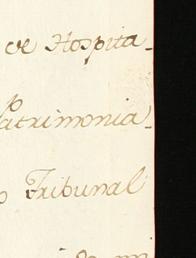 de Hospita_
Patrimonia_
o Tribunal